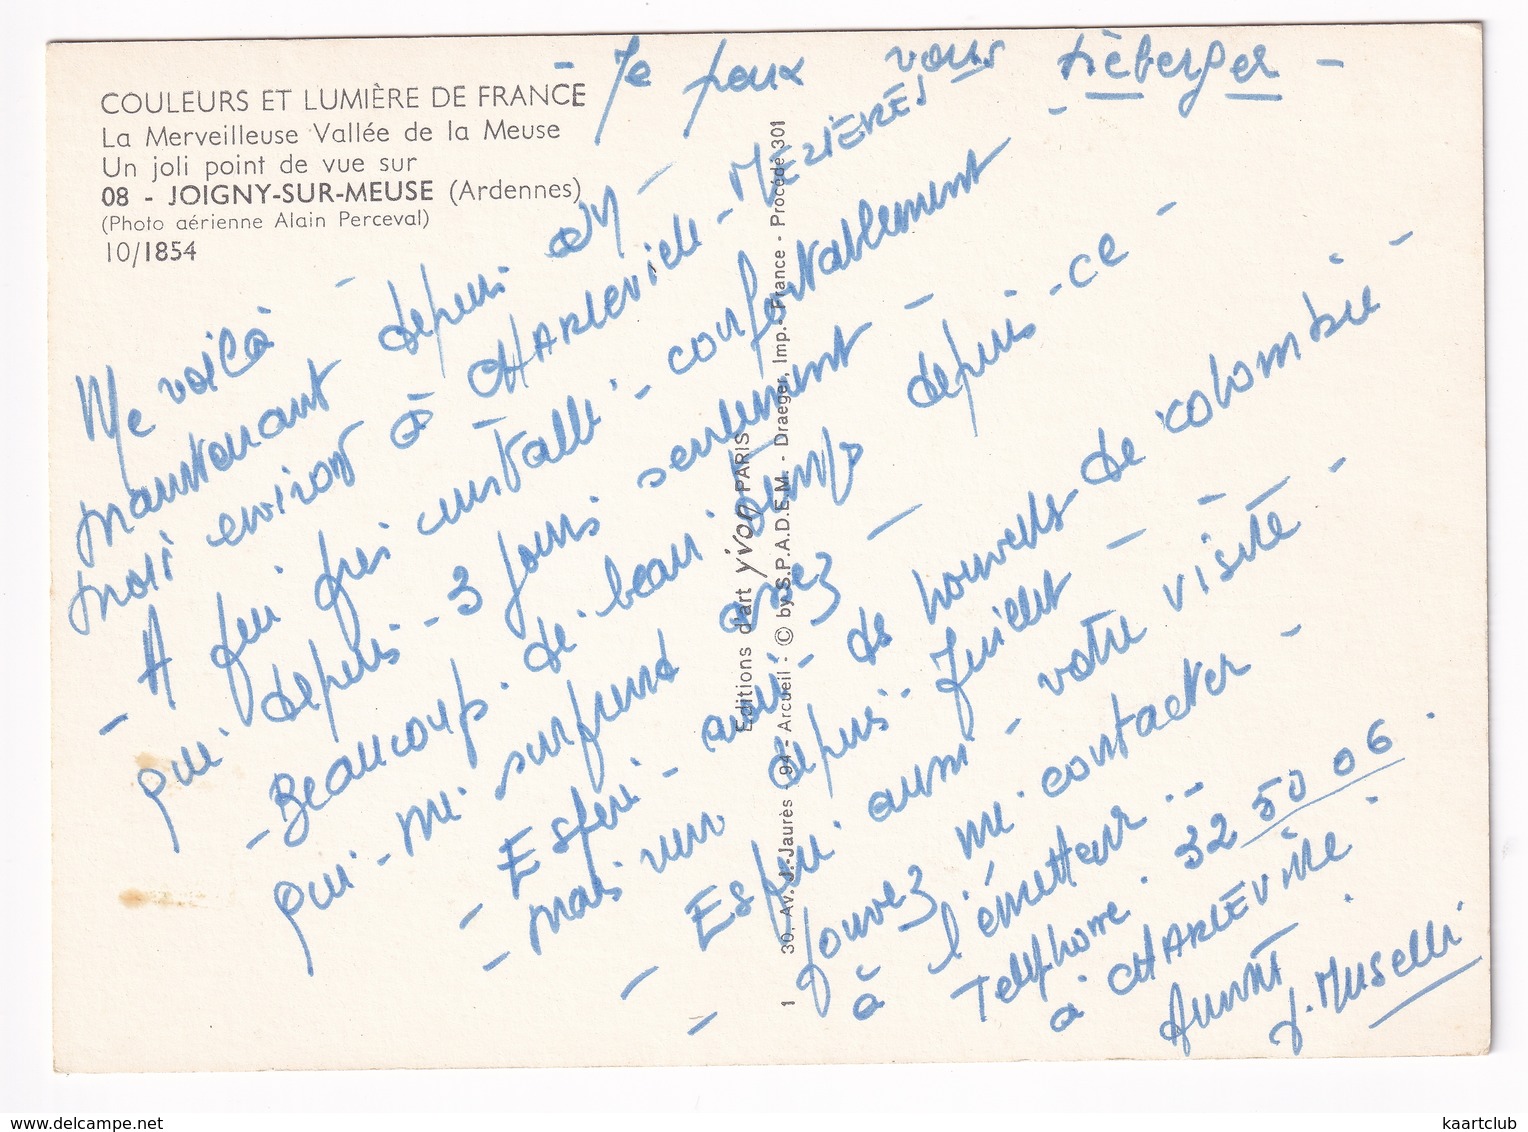 COULEURS ET LUMIÈRE DE FRANCE
La Merveilleuse Vallée de la Meuse
Un joli point de vue sur
08 - JOIGNY-SUR-MEUSE (Ardennes)
(Photo aérienne Alain Perceval)
10/1854
- Je peux vous héberger -
Me voilà
maintenant depuis
mois environ à CHARLEVILLE - MEZIERES
- A peu près installé - confortablement
qui depuis - 3 jours seulement -
- Beaucoup de beau temps depuis - ce -
qui - me surprend assez -
- Espère - avoir - de nouvelles de colombie -
- mais rien depuis - Juillet -
- Espère aussi - votre visite -
- pouvez me contacter -
à l'émetteur . -
Telephone . 32 50 06 .
à CHARLEVILLE .
J. Muselli
Editions d'art yvon PARIS
1 30, Av. J.-Jaurès - 94 - Arcueil - © by S.P.A.D.E.M. - Draeger, Imp. - France - Procédé 301
www.delcampe.net
kaartclub